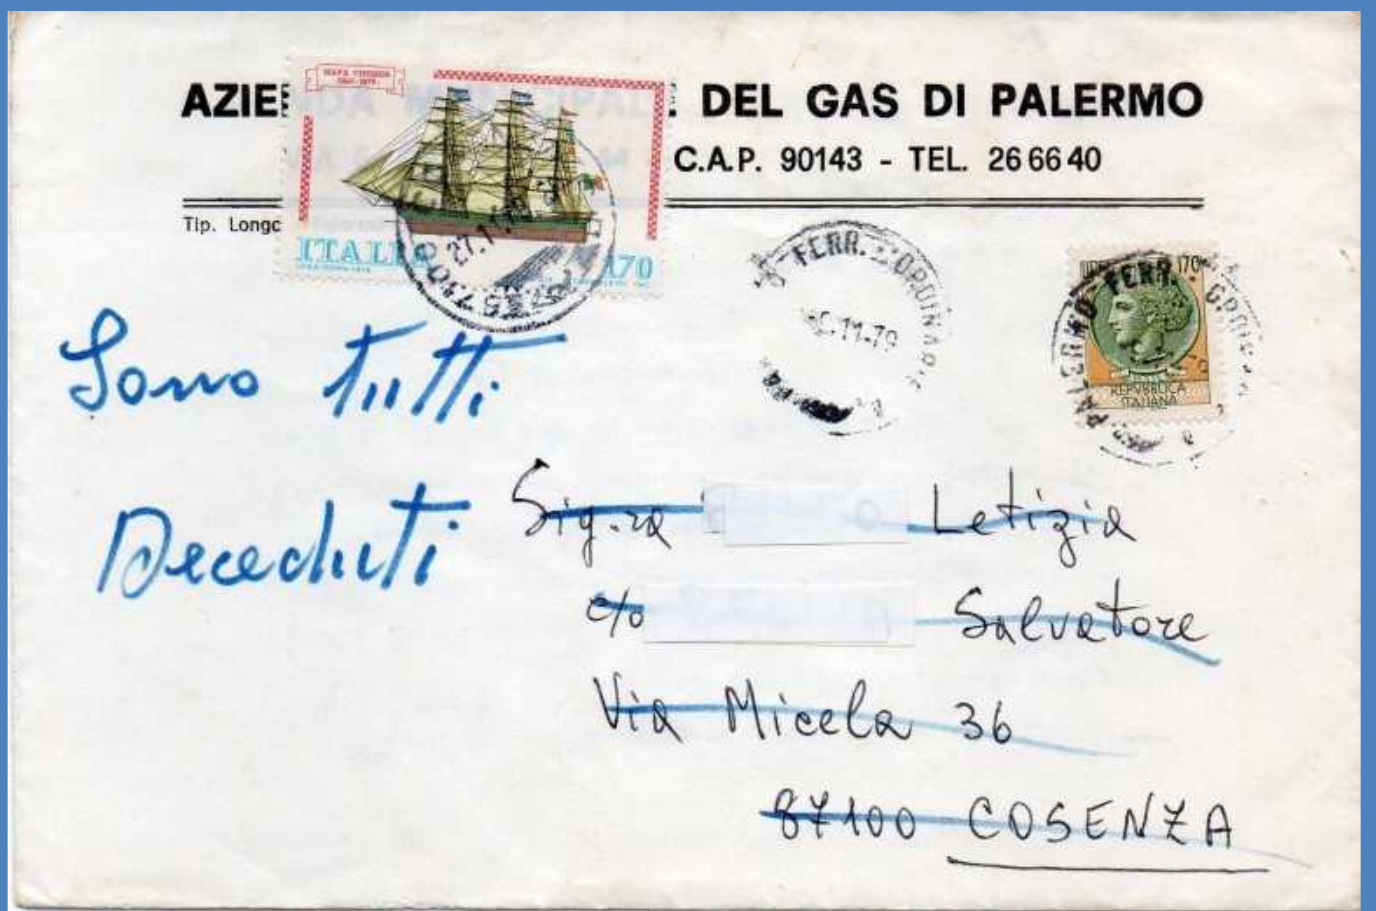 AZIENDA MUNICIPALE DEL GAS DI PALERMO
C.A.P. 90143 - TEL. 26 66 40
Tip. Longo
ITALIA 170
27.11.
FERR. ORDINARIE
11-79
170
PALERMO FERR.
REPVBBLICA
ITALIANA
Sono tutti
Deceduti
Sig.ra Letizia
c/o Salvatore
Via Micela 36
87100 COSENZA